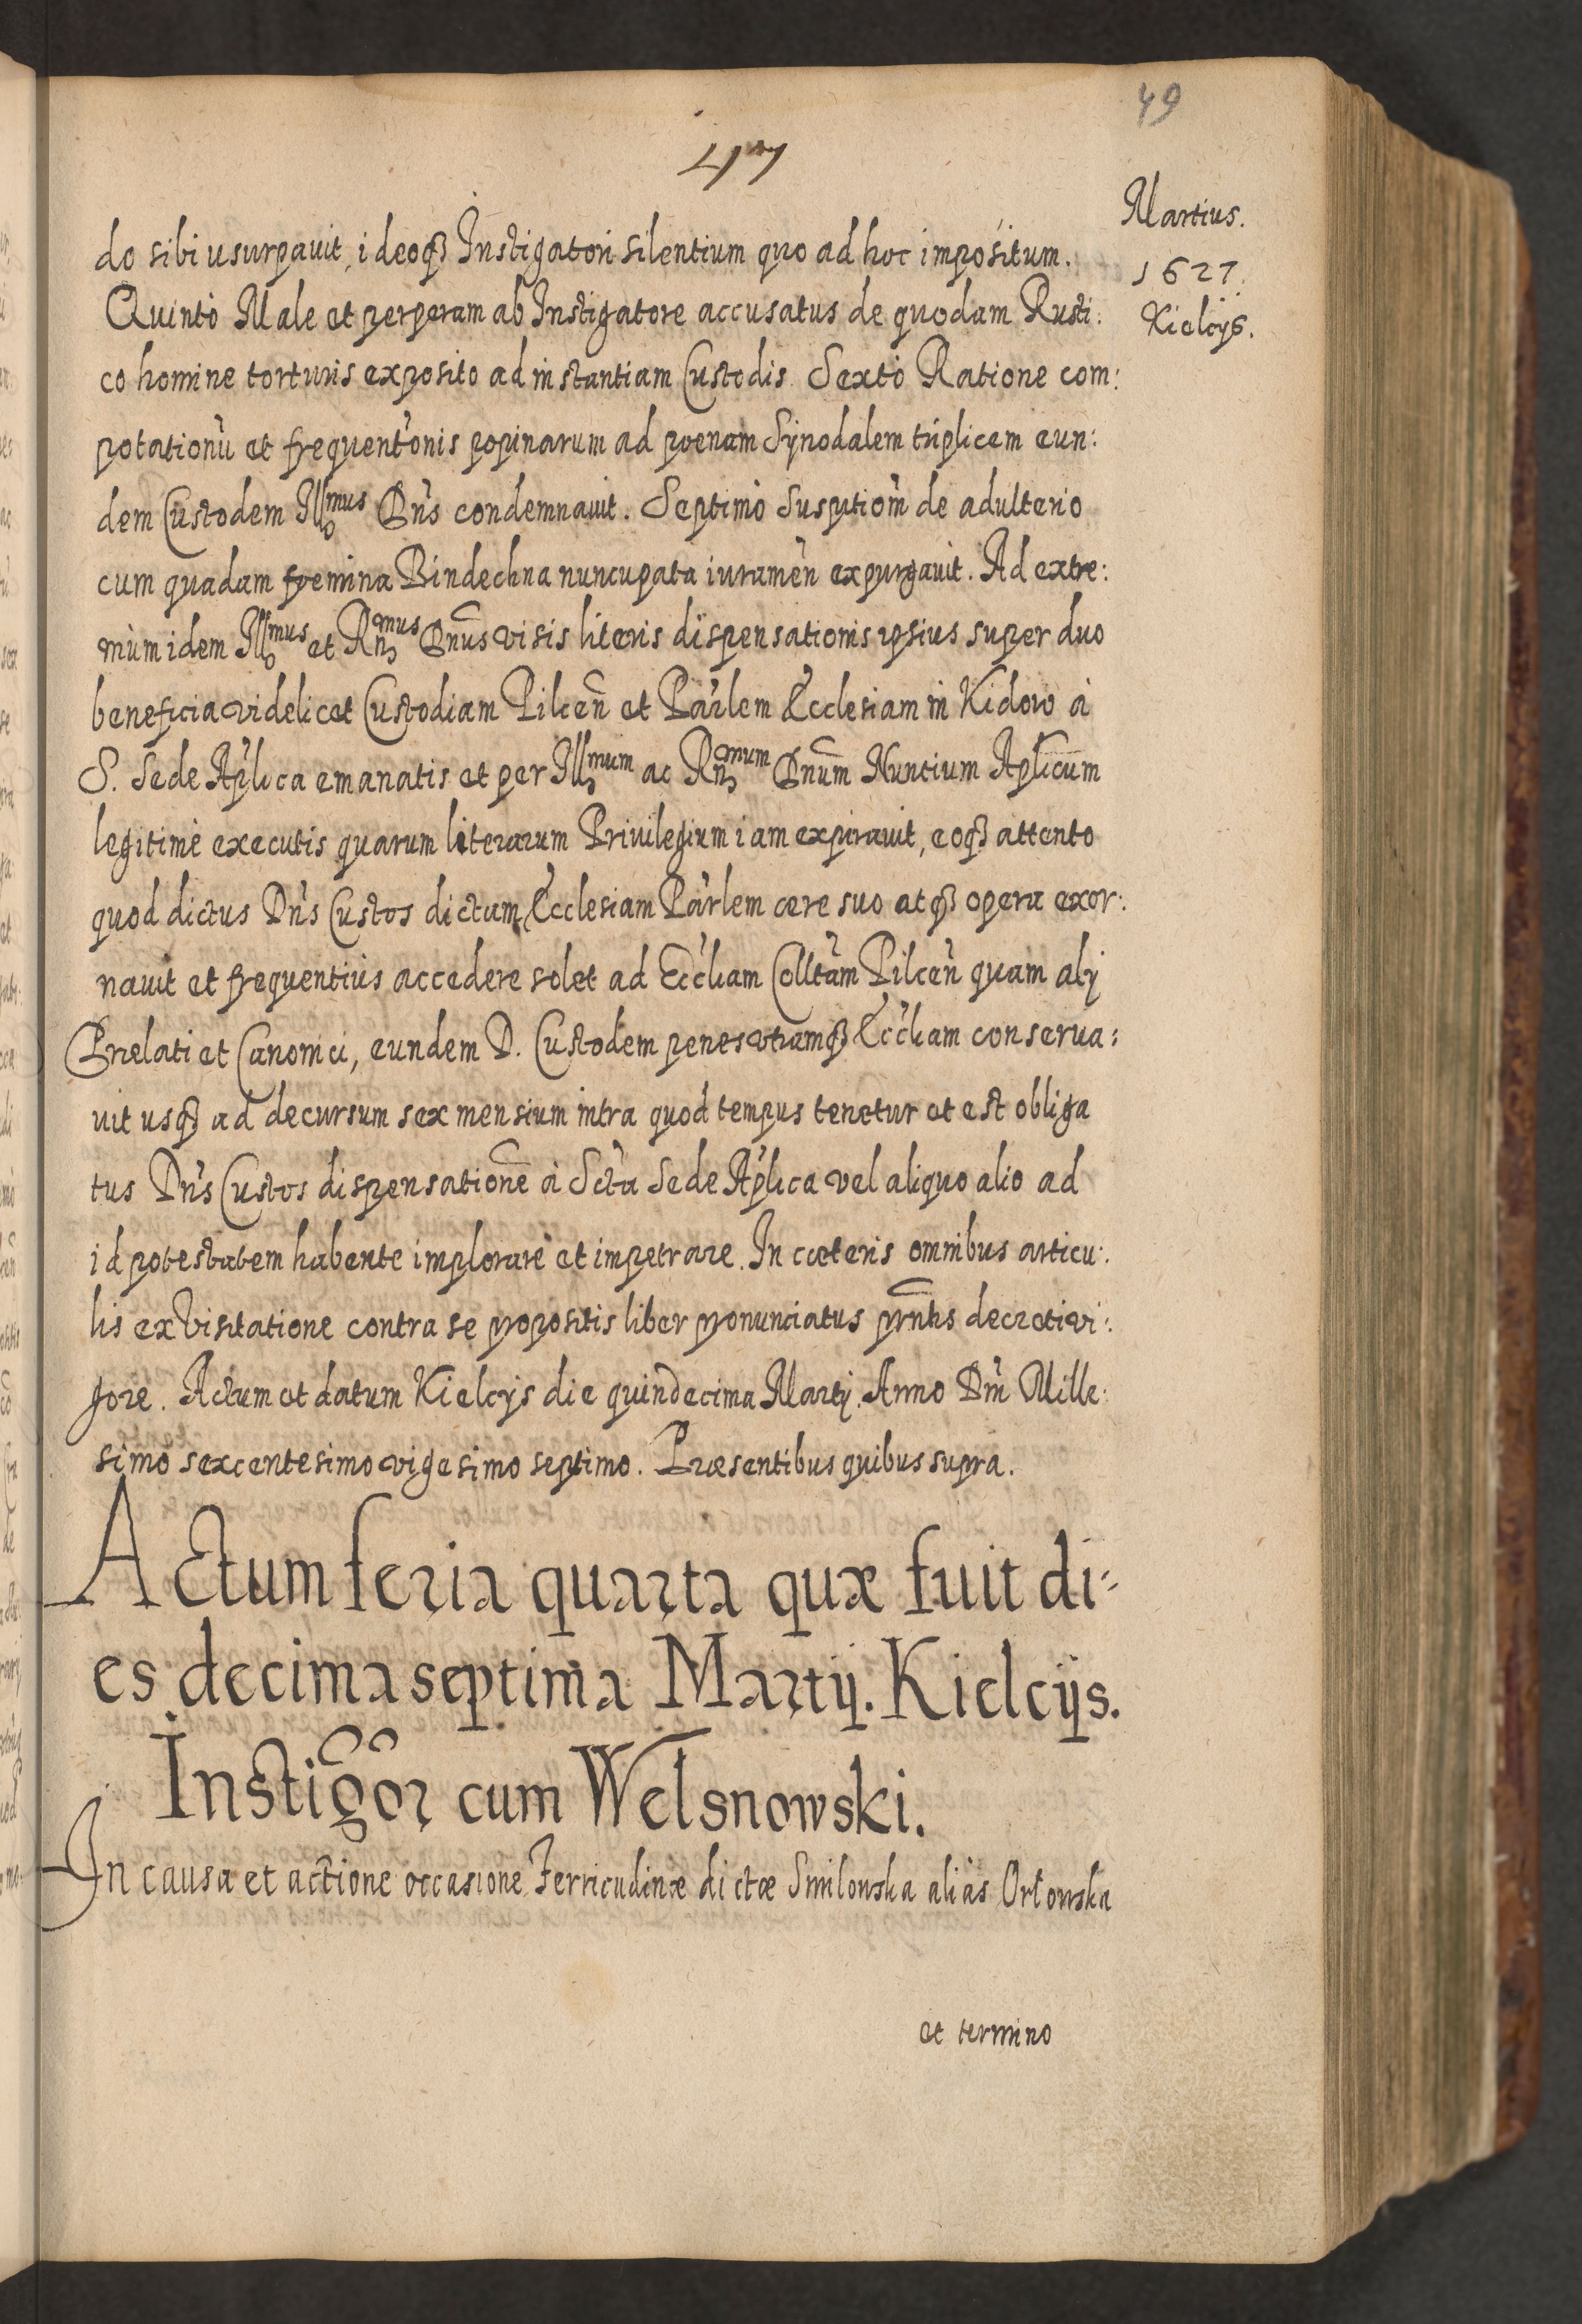 49
47
Martius.
1627.
Kielcijs.
do sibi usurpavit, ideoqȝ Instigatori silentium quo ad hoc impositum.
Quintò Male et perperam ab Instigatore accusatus de quodam Rusti:
co homine torturis exposito ad instantiam Custodis. Sextò Ratione com:
potationũ et frequentõnis popinarum ad poenam Synodalem triplicem eun:
dem Custodem Illmus Dñs condemnavit. Septimò Susptiom̃ de adulterio
cum quadam foemina Bindechna nuncupata iuramen̄ expurgavit. Ad extre:
mùm idem Illmus et Rñmus Dnūs visis literis dispensationis ipsius super duo
beneficia videlicet Custodiam Pilcen̄ et Pārlem Ecclesiam in Kidow à
S. Sede Apl̃ica emanatis et per Illmum ac Rñmum Dnūm Nuntium Aplīcum
legitimè executis quarum literarum Privilegium iam expiravit, eoqȝ attento
quod dictus Dñs Custos dictam Ecclesiam Pārlem aere suo atqȝ opera exor:
navit et frequentiùs accedere solet ad Ecc̃liam Colltãm Pilcen̄ quam alij
Praelati et Canonici, eundem D. Custodem penes utramqȝ Ecc̃liam conserva:
vit usqȝ ad decursum sex mensium intra quod tempus tenetur et est obliga
tus Dñs Custos dispensationē à Sctã Sede Apl̃ica vel aliquo alio ad
id potestatem habente implorare et impetrare. In caeteris omnibus articu:
lis ex Visitatione contra se propositis liber pronunciatus prn̄tis decreti vi:
gore. Actum et datum Kielcijs die quindecima Martij. Anno Dñi Mille:
simo sexcentesimo vigesimo septimo. Praesentibus quibus supra.
Actum feria quarta quæ fuit di-
es decima septima Martij. Kielcijs.
Instig̃or̃ cum Welsnowski.
In causa et actione occasione Ferricudinæ dictæ Smilowska aliàs Orłowska
et termino